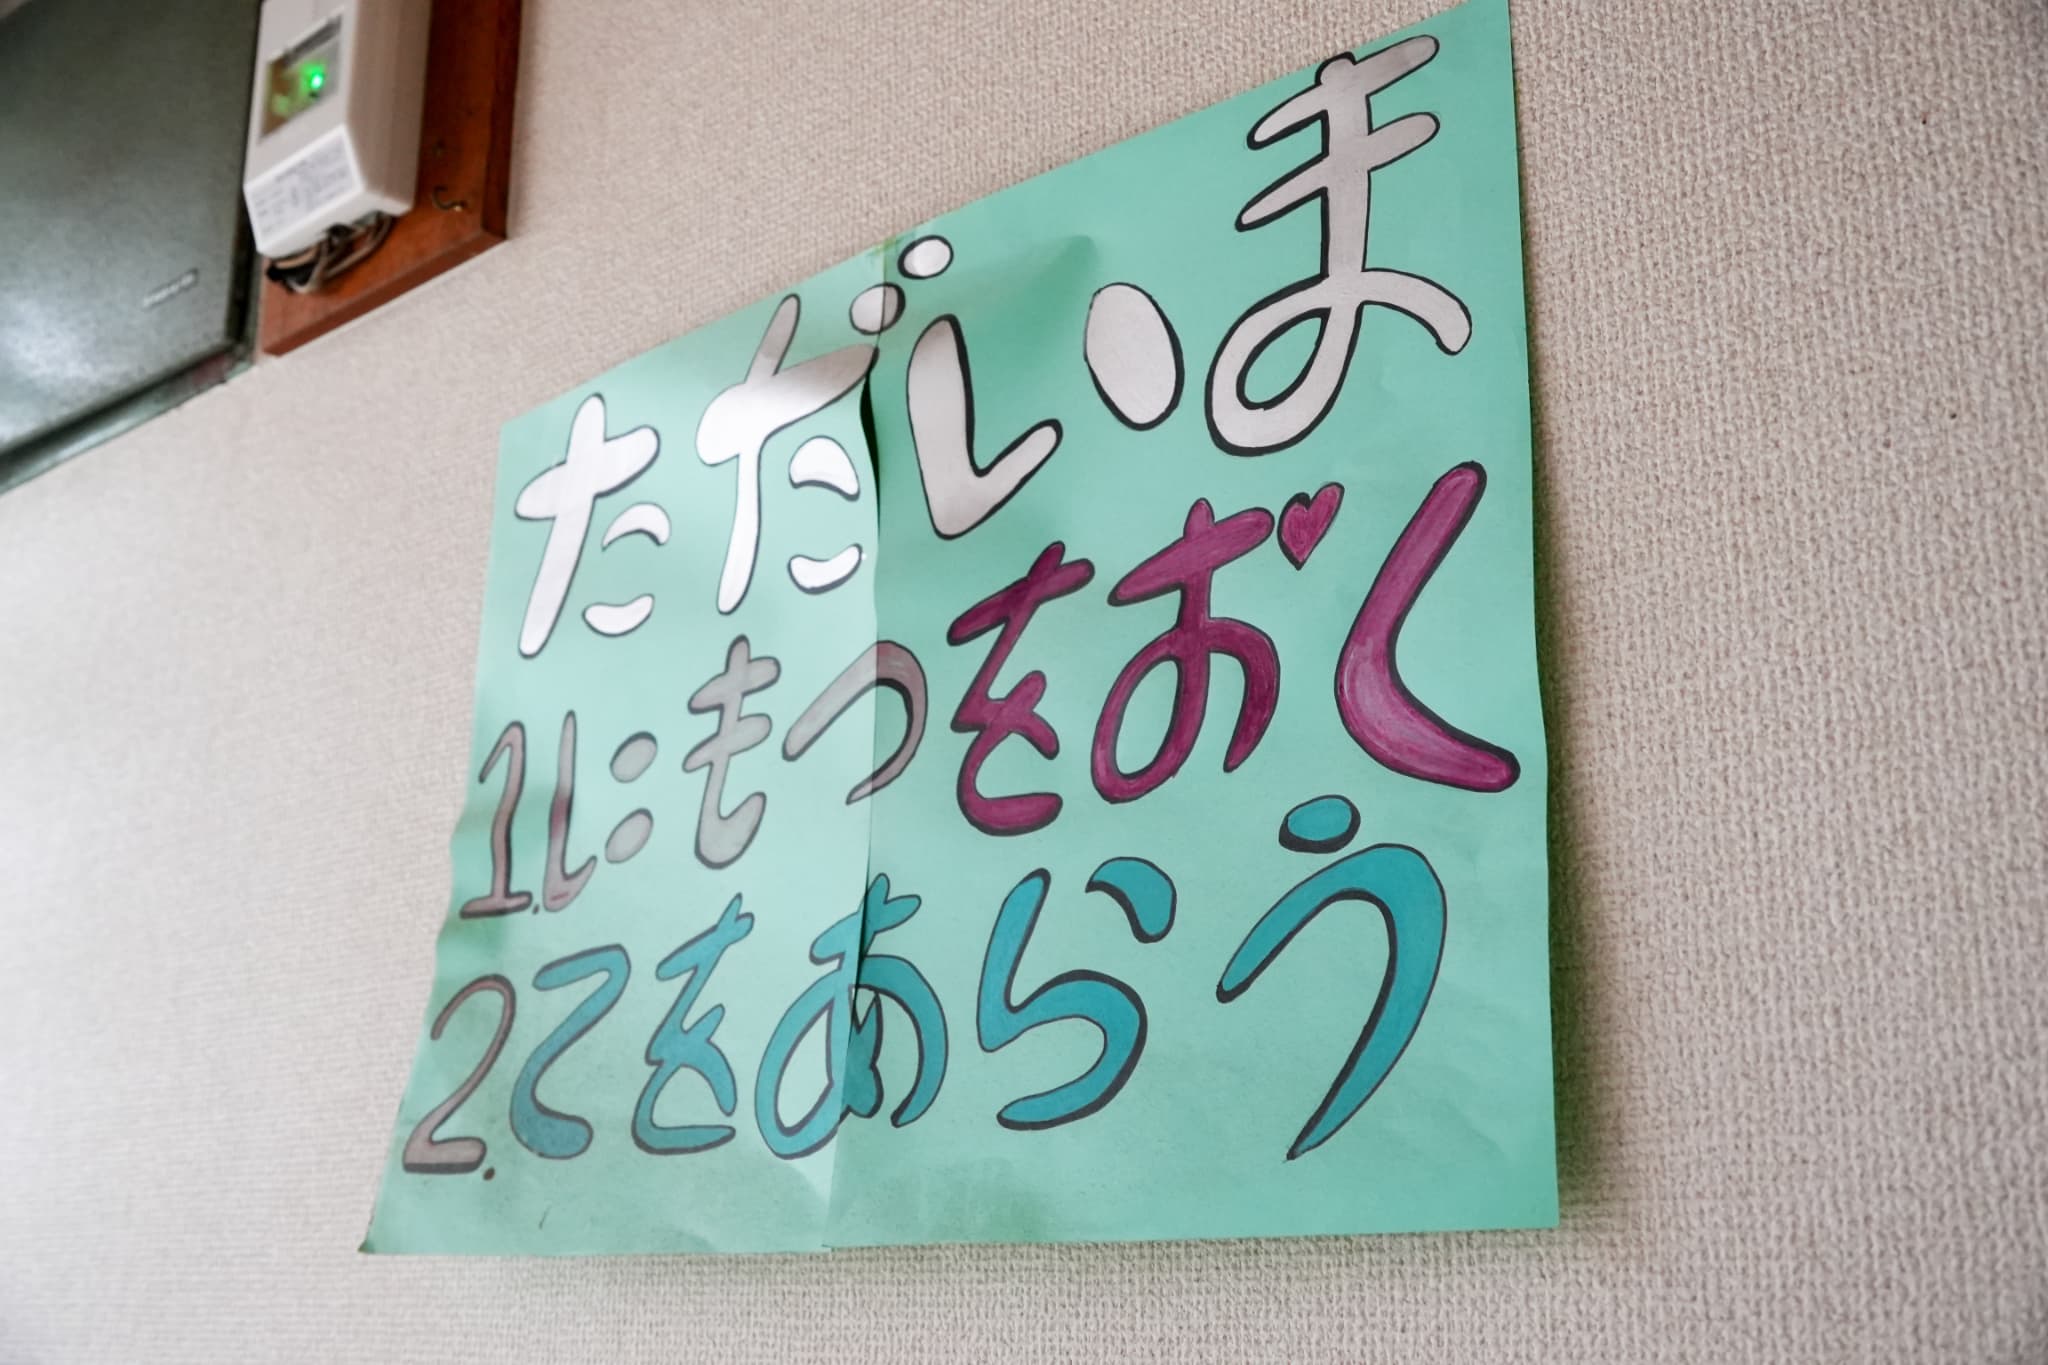 ただいま
1.にもつをおく
2.てをあらう